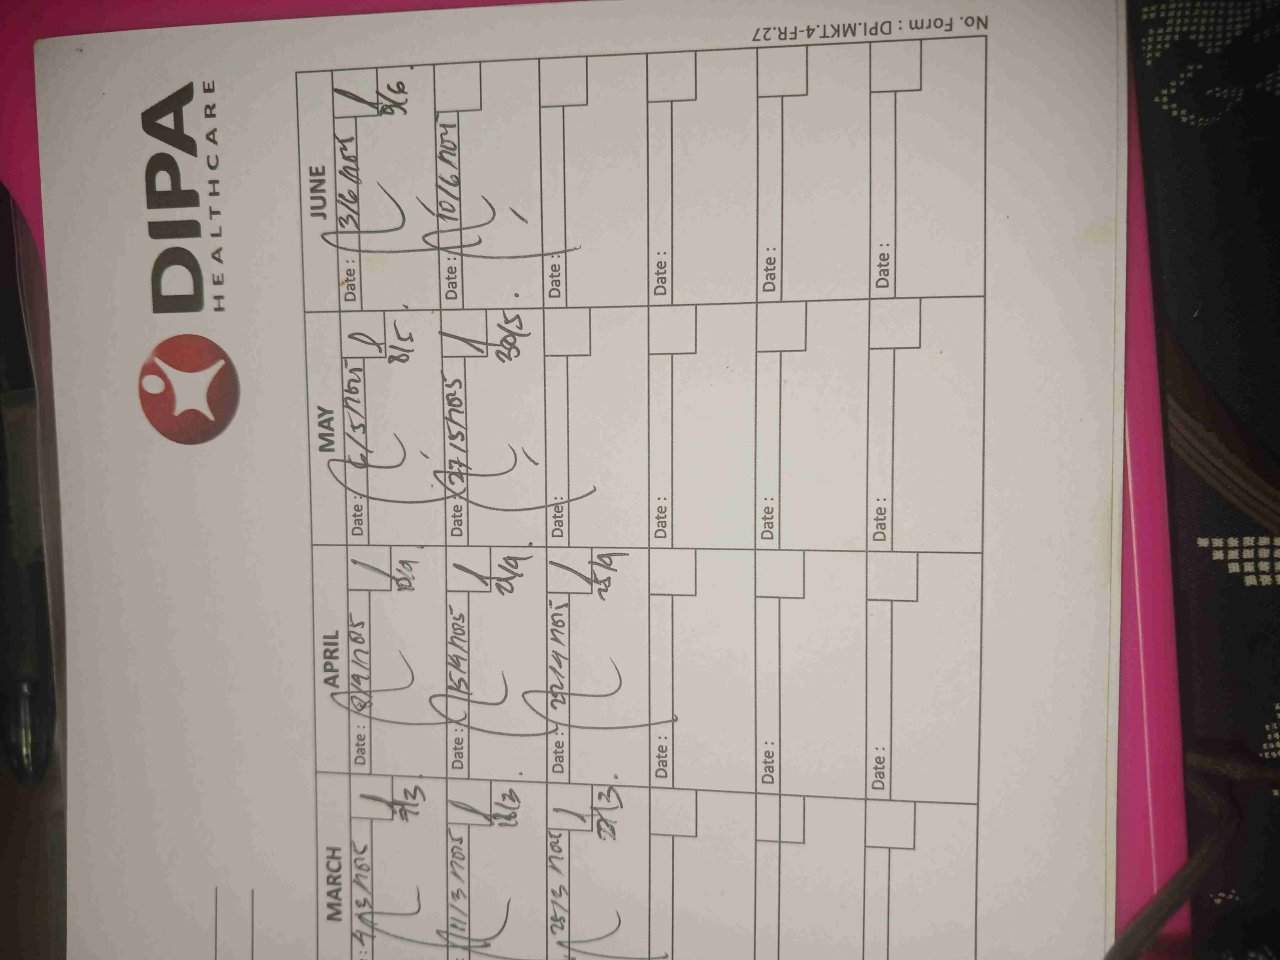 DIPA
HEALTHCARE
MARCH
APRIL
MAY
JUNE
: 4/3 2025
7/3
Date : 8/4 2025
10/4
Date : 6/5 2025
8/5
Date : 3/6 2025
9/6
11/3 2025
18/3
Date : 15/4 2025
21/4
Date : 27/5 2025
30/5
Date : 10/6 2025
25/3 2025
27/3
Date : 22/4 2025
25/4
Date :
Date :
Date :
Date :
Date :
Date :
Date :
Date :
Date :
Date :
Date :
No. Form : DPI.MKT.4-FR.27